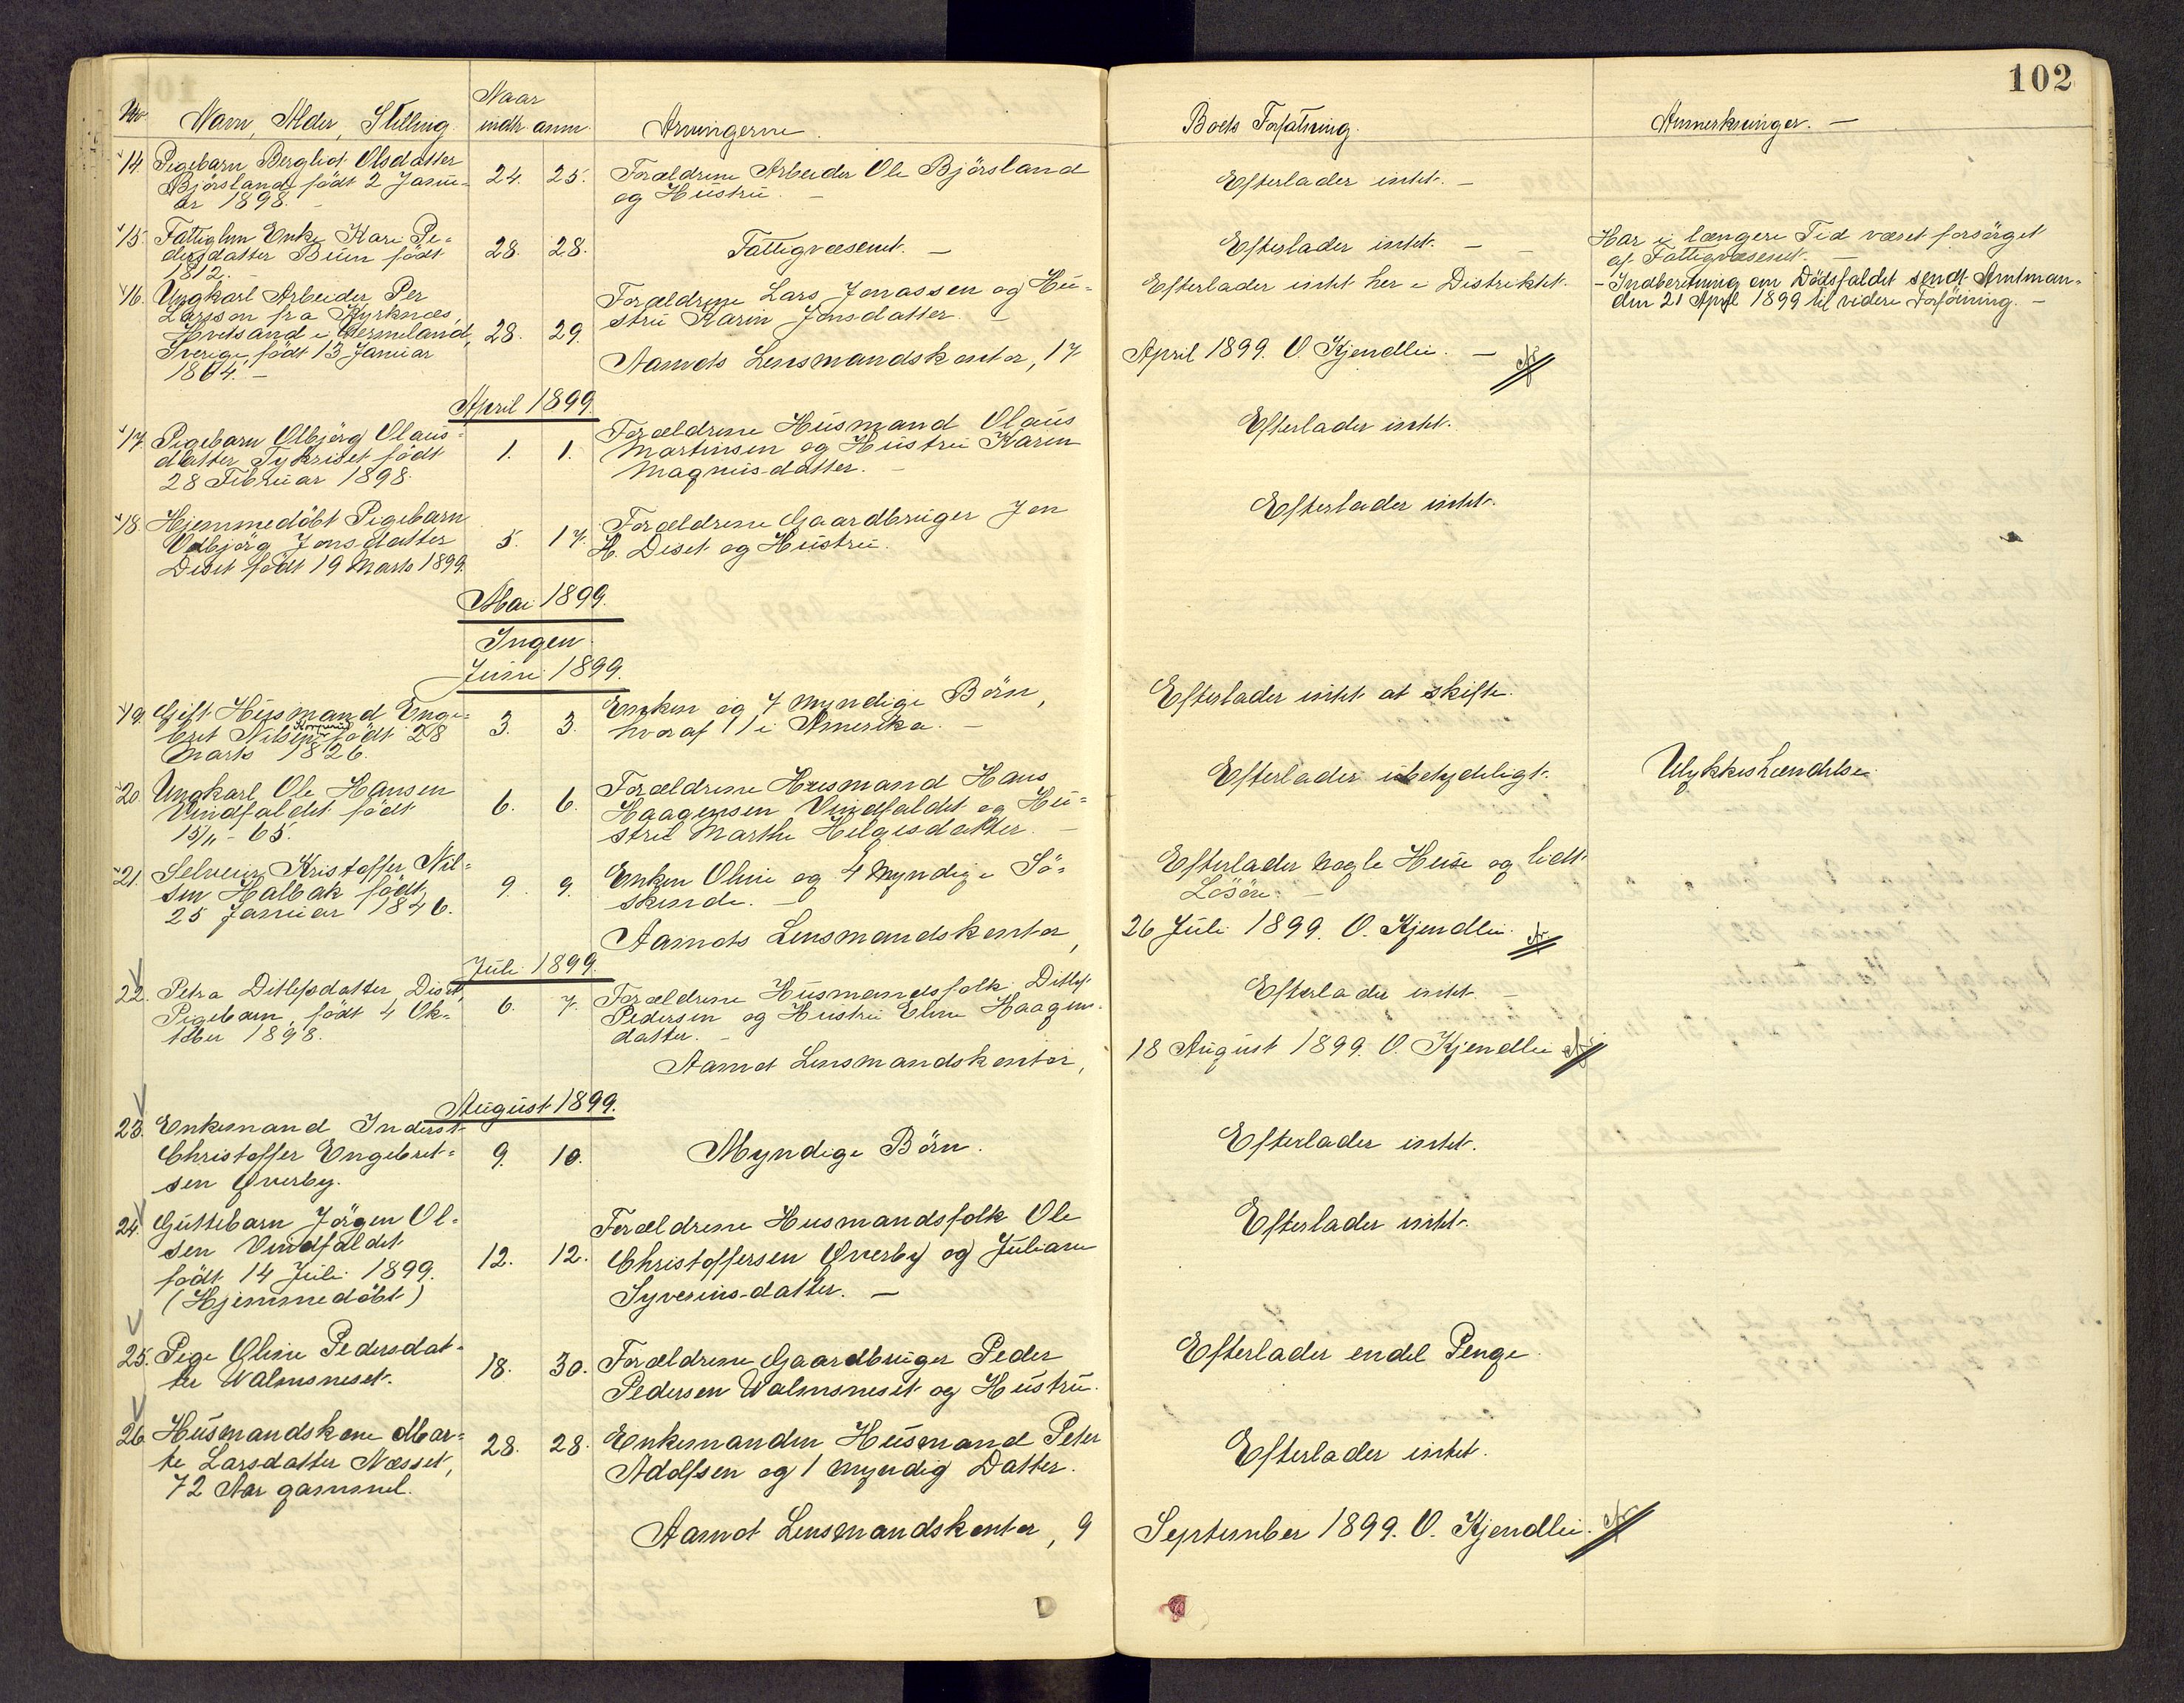 102
Naar
No Navn, Alder, Stilling. indtr. anm. Arvingerne. Boets Forfatning. Anmerkninger. —
14. Pigebarn Bergliot Olsdatter
Björsland født 2 Janu-
ar 1898. —
24. 25. Forældrene Arbeider Ole Björsland
og Hustru. —
Efterlader intet. —
15. Fattiglem Enke Kari Pe-
dersdatter Buen født
1812. —
28. 28. Fattigvæsenet. —
Efterlader intet. — —
Har i længere Tid været forsörget
af Fattigvæsenet. —
16. Ungkarl Arbeider Per
Larsson fra Kyrknæs,
Hvitsand i Vermland,
Sverige, født 13 Januar
1864. —
28. 29. Forældrene Lars Jonassen og Hu-
stru Karin Jonsdatter. —
Efterlader intet her i Distriktet.
- Indberetning om Dödsfaldet sendt Amtman-
den 21 April 1899 til videre Forföining. —
Aamots Lensmandskontor, 17 April 1899. O. Kjendlie. —
April 1899.
17. Pigebarn Olbjörg Olaus-
datter Tykriset født
28 Februar 1898.
1. 1. Forældrene Husmand Olaus
Martinsen og Hustru Karen
Magnus-datter. —
Efterlader intet.
18. Hjemmedöbt Pigebarn
Valbjörg Jonsdatter
Deset født 19 Marts 1899.
5. 17. Forældrene Gaardbruger Jon
H. Deset og Hustru.
Efterlader intet.
Mai 1899.
Ingen
Juni 1899.
19. Gift Husmand Enge-
bret Nilsen født 28
Marts 1826.
3. 3. Enken og 7 myndige Börn,
hvoraf 1 i Amerika. —
Efterlader intet at skifte.
20. Ungkarl Ole Hansen
Vindfaldet født
15/11 - 65.
6. 6. Forældrene Husmand Hans
Haagensen Vindfaldet og Hu-
stru Marthe Helgesdatter. —
Efterlader ubetydeligt.
Ulykkeshændelse.
21. Selveier Kristoffer Nil-
sen Halbak født
25 Januar 1846.
9. 9. Enken Oline og 4 Myndige Sö-
skende. —
Efterlader nogle Huse og lidt
Lösöre. —
Aamots Lensmandskontor, 26 Juli 1899. O. Kjendlie.
Juli 1899.
22. Petra Ditlefsdatter Deset,
Pigebarn, født 4 Ok-
tober 1898.
6. 7. Forældrene Husmandsfolk Ditlef
Pedersen og Hustru Eline Haagens-
datter. —
Efterlader intet. —
Aamot Lensmandskontor, 18 August 1899. O. Kjendlie
August 1899.
23. Enkemand Inderst
Christoffer Engebret-
sen Qverby.
9. 10. Myndige Börn.
Efterlader intet.
24. Guttebarn Jörgen Ol-
sen Vindfaldet
født 14 Juli 1899.
(Hjemmedöbt)
12. 12. Forældrene Husmandsfolk Ole
Christoffersen Qverby og Juliane
Syverins-datter. —
Efterlader intet.
25. Pige Oline Pedersdat-
ter Valmsneset.
18. 30. Forældrene Gaardbruger Peder
Pedersen Valmsneset og Hustru.
Efterlader endel Penge.
26. Husmandskone Mar-
te Larsdatter Næsset,
72 Aar gammel.
28. 28. Enkemanden Husmand Peter
Adolfsen og 1 myndig Datter.
Efterlader intet.
Aamot Lensmandskontor, 9 September 1899. O. Kjendlie.